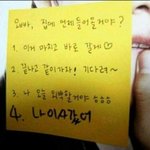 오빠, 집에 언제들어올거야?
1. 이거 마치고 바로 갈게♡
2. 끝나고 같이가자! 기다려~
3. 나 오늘 외박할거야 ㅎㅎㅎ
4. 나이사갔어